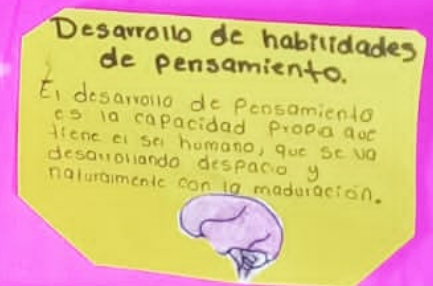 Desarrollo de habilidades
de pensamiento.
El desarrollo de pensamiento
es la capacidad propia que
tiene el ser humano, que se va
desarrollando despacio y
naturalmente con la maduración.